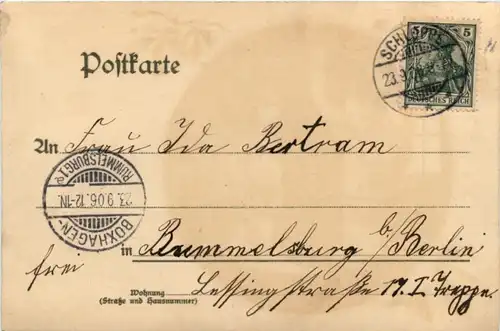 5
DEUTSCHES REICH
Postkarte
An Frau Ida Bertram
BOXHAGEN-RUMMELSBURG 1 c
23.9.06.12-1N.
in Rummelsburg b/Berlin
frei
Wohnung
(Straße und Hausnummer)
Lessingstraße 17. I Treppe.